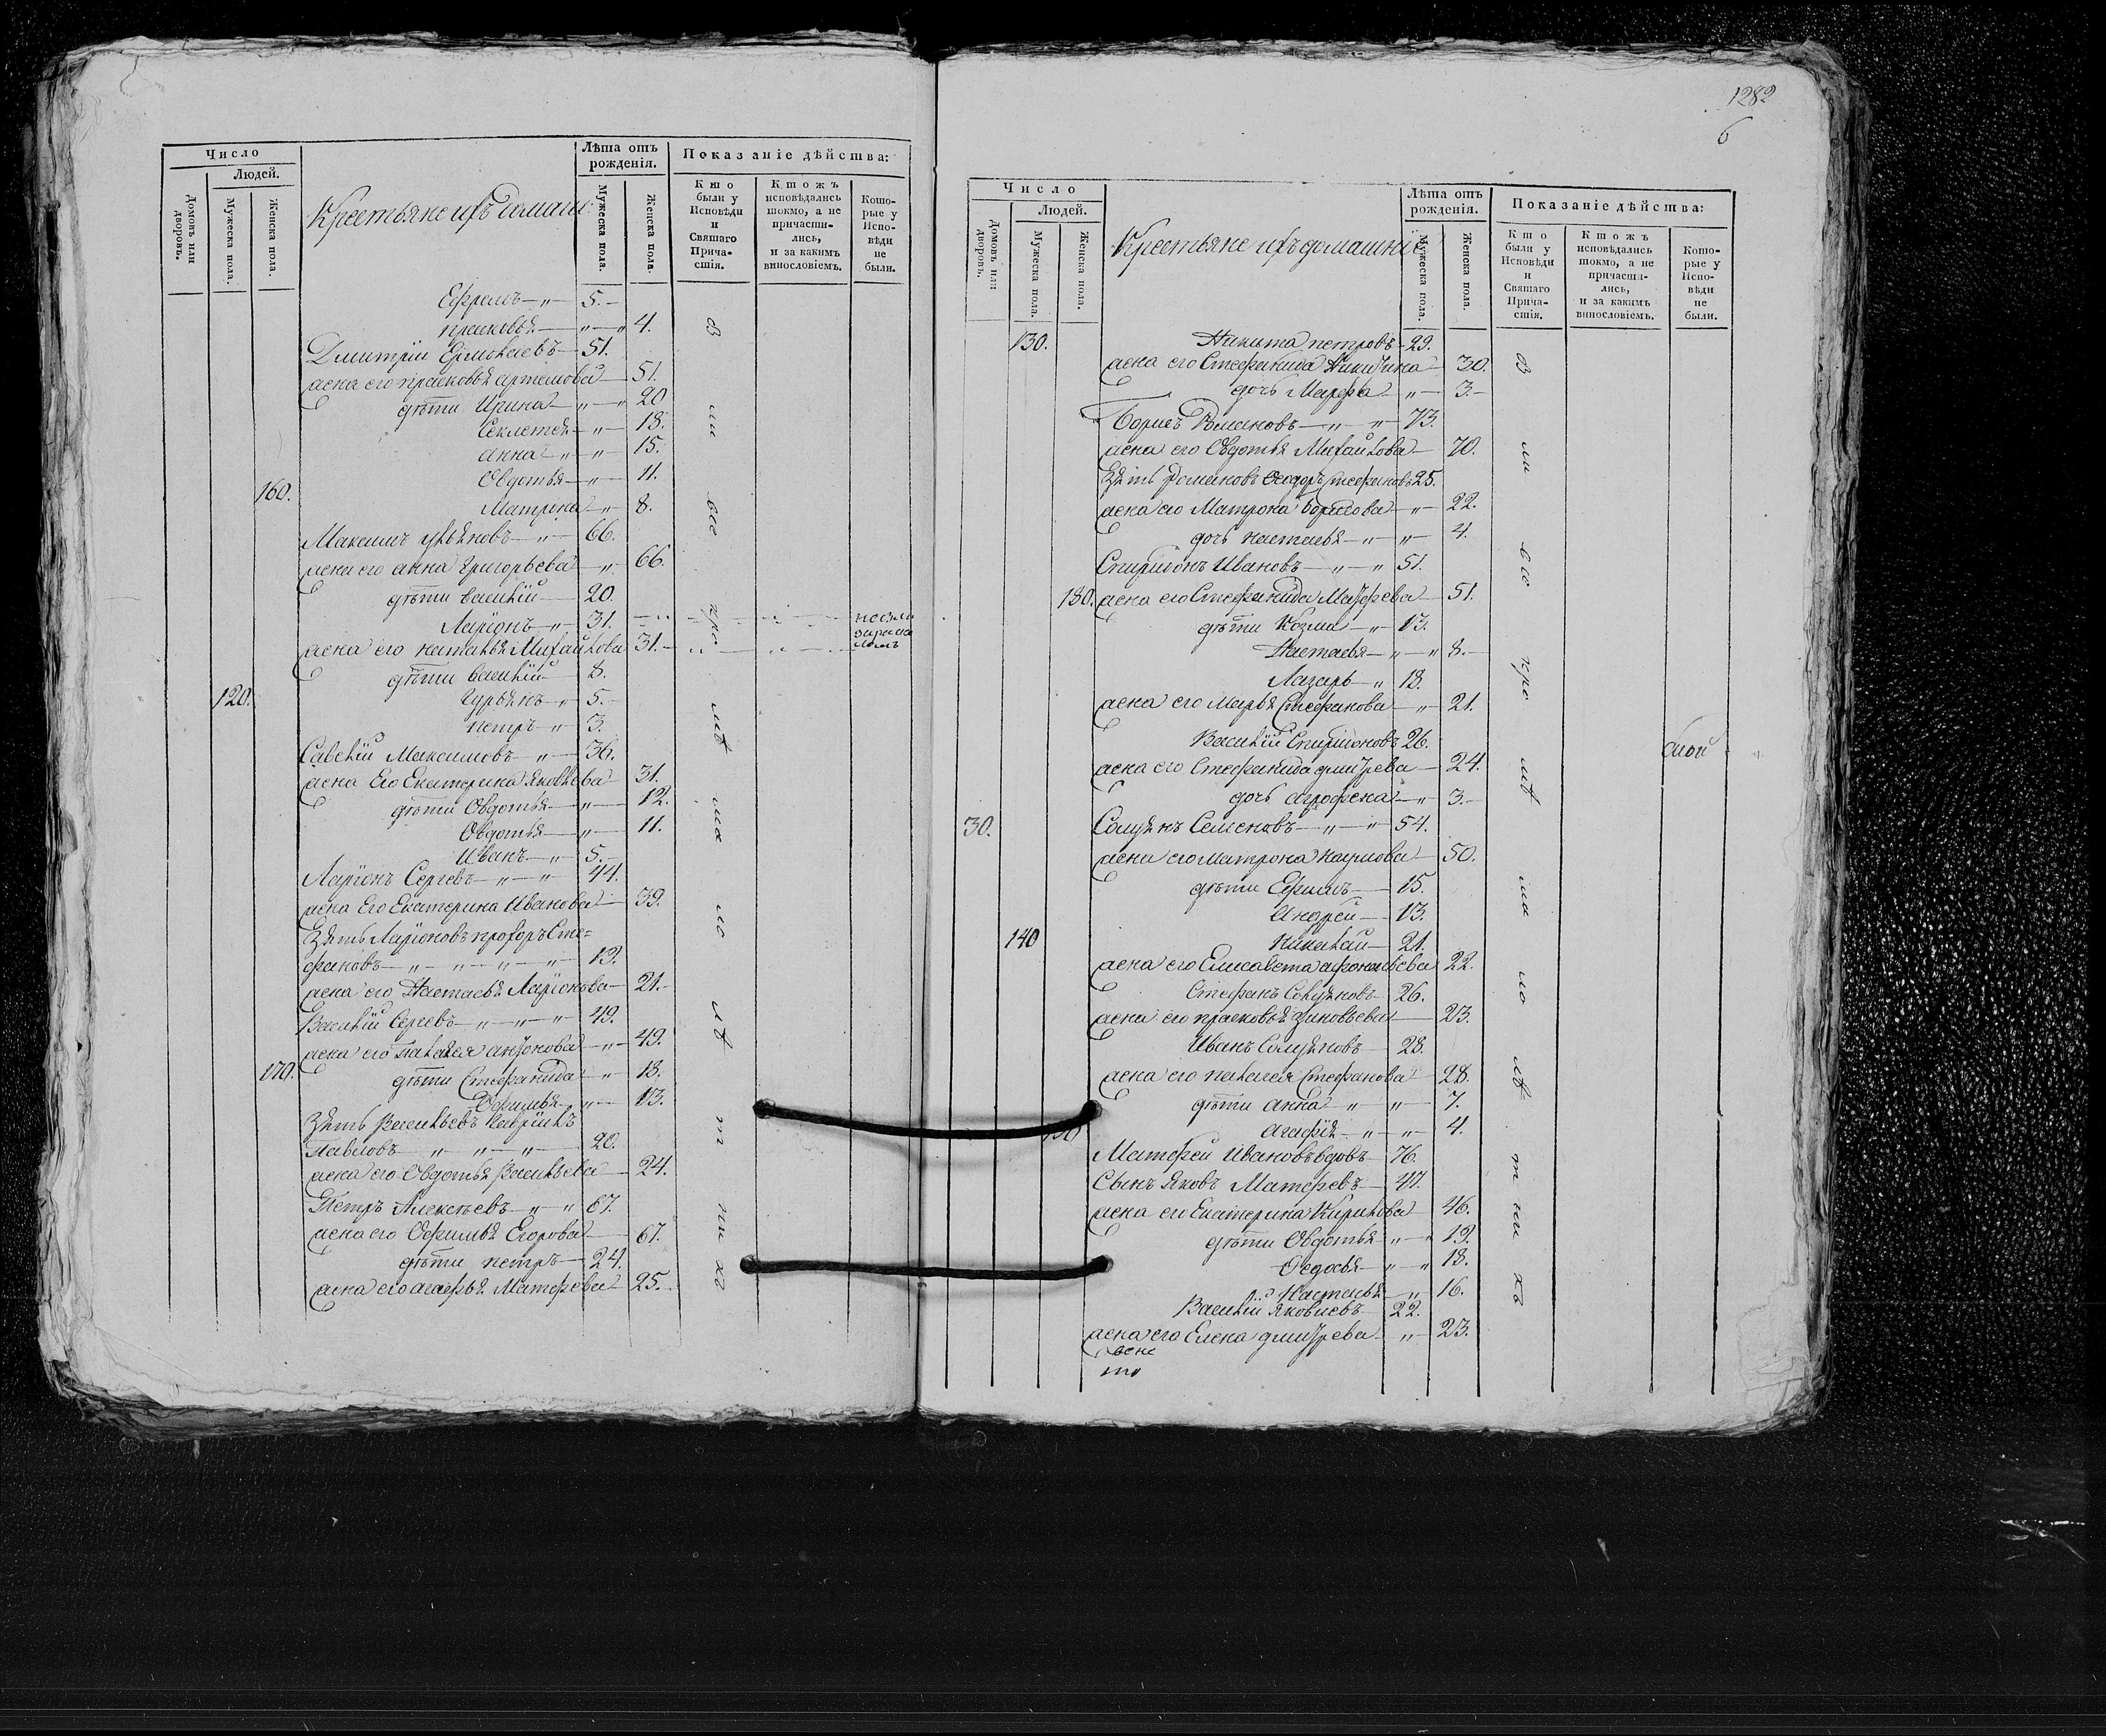 Число
Людей.
Домовъ или дворовъ.
Мужеска пола.
Женска пола.
Крестьяне ихъ
Лѣта отъ рожденія.
Мужеска пола.
Женска пола.
Показаніе дѣйства:
Кто были у Исповѣди и Святаго Прича-стія.
Ктожъ исповѣдались токмо, а не причасти-лись, и за какимъ винословіемъ.
Кото-рые у Испо-вѣди не были.
Ефремъ 5.
прасковья 4.
Дмитрiй Ермолаевъ 51.
жена его прасковья артемова 51.
дѣти Ирина 20
Секлетея 18.
анна 15.
Овдотья 11.
160.
Матрена 8.
Максимъ 66.
жена его анна Григорьева 66.
дѣти василiй 20.
Ларiонъ 31.
жена его наталья Михайлова 31.
дѣти василiй 8.
120. Гурьянъ 5.
петръ 3.
Савелiй Максимовъ 36.
жена Его Екатерина Яковлева 31.
дѣти Овдотья 12.
Овдотья 11.
Иванъ 5.
Ларiонъ Сергеевъ 44.
жена Его Екатерина Иванова 39.
Зять Ларiоновъ прохоръ Сте=
фановъ 19.
жена его Настасья Ларiонова 21.
Василiй Сергеевъ 49.
жена его палагея антонова 49.
170. дѣти Стефанида 18.
Офимья 13.
Зять Васильевъ
Павловъ 20.
жена его Овдотья Васильева 24.
Петръ Алексѣевъ 67.
жена его Офимья Егорова 67.
дѣти петръ 24.
жена его агафья Матфеева 25.
1282
6
Число
Людей.
Домовъ или дворовъ.
Мужеска пола.
Женска пола.
Крестьяне ихъ домашние
Лѣта отъ рожденія.
Мужеска пола.
Женска пола.
Показаніе дѣйства:
Кто были у Исповѣди и Святаго Прича-стія.
Ктожъ исповѣдались токмо, а не причасти-лись, и за какимъ винословіемъ.
Кото-рые у Испо-вѣди не были.
130. Никита петровъ 29.
жена его Стефанида Никитина 30.
дочь Марфа 3.
Борисъ Романовъ 73.
жена его Овдотья Михайлова 70.
Зять Романовъ Ѳеодоръ Стефановъ 25.
жена его Матрона борисова 22.
дочь настасья 4.
Спиридонъ Ивановъ 51.
180. жена его Стефанида Матфеева 51.
дѣти Козма 13.
Настасья 8.
Лазарь 18.
жена его Марья Стефанова 21.
Василiй Спиридоновъ 26.
жена его Стефанида дмитрева 24.
дочь агрофена 3.
30. Семеновъ 54.
жена его Матрона наумова 50.
дѣти Ефимъ 15.
Андрей 13.
140 николай 21.
жена его Елисавета афонасьева 22.
Стефанъ 26.
жена его прасковья Зиновьева 23.
Иванъ 28.
жена его палагея Стефанова 28.
дѣти анна 7.
агафiя 4.
Матфей Ивановъ вдовъ 76.
Сынъ Яковъ Матфеевъ 47.
жена его Екатерина Кирилова 46.
дѣти Овдотья 19.
Ѳедосья 18.
Настасья 16.
Василiй Яковлевъ 22.
жена его Елена дмитрева 23.